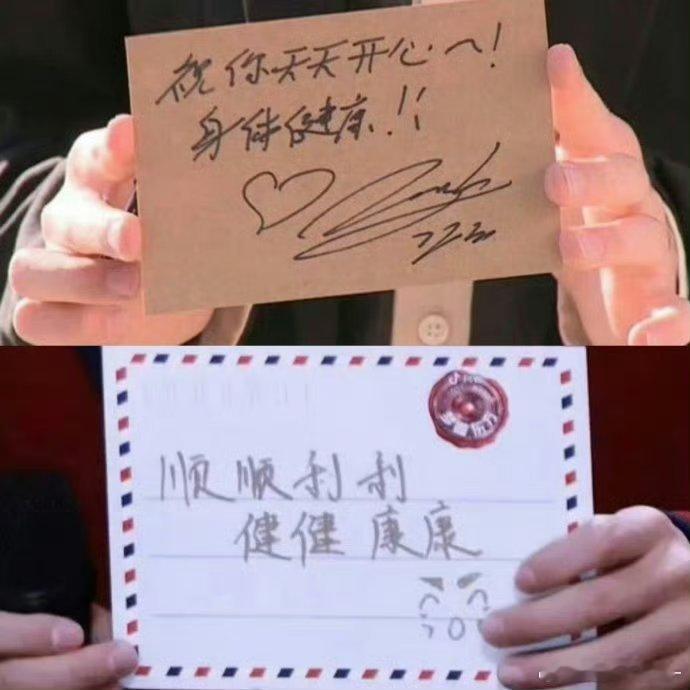 祝你天天开心へ！
身体健康！！
顺顺利利
健健康康